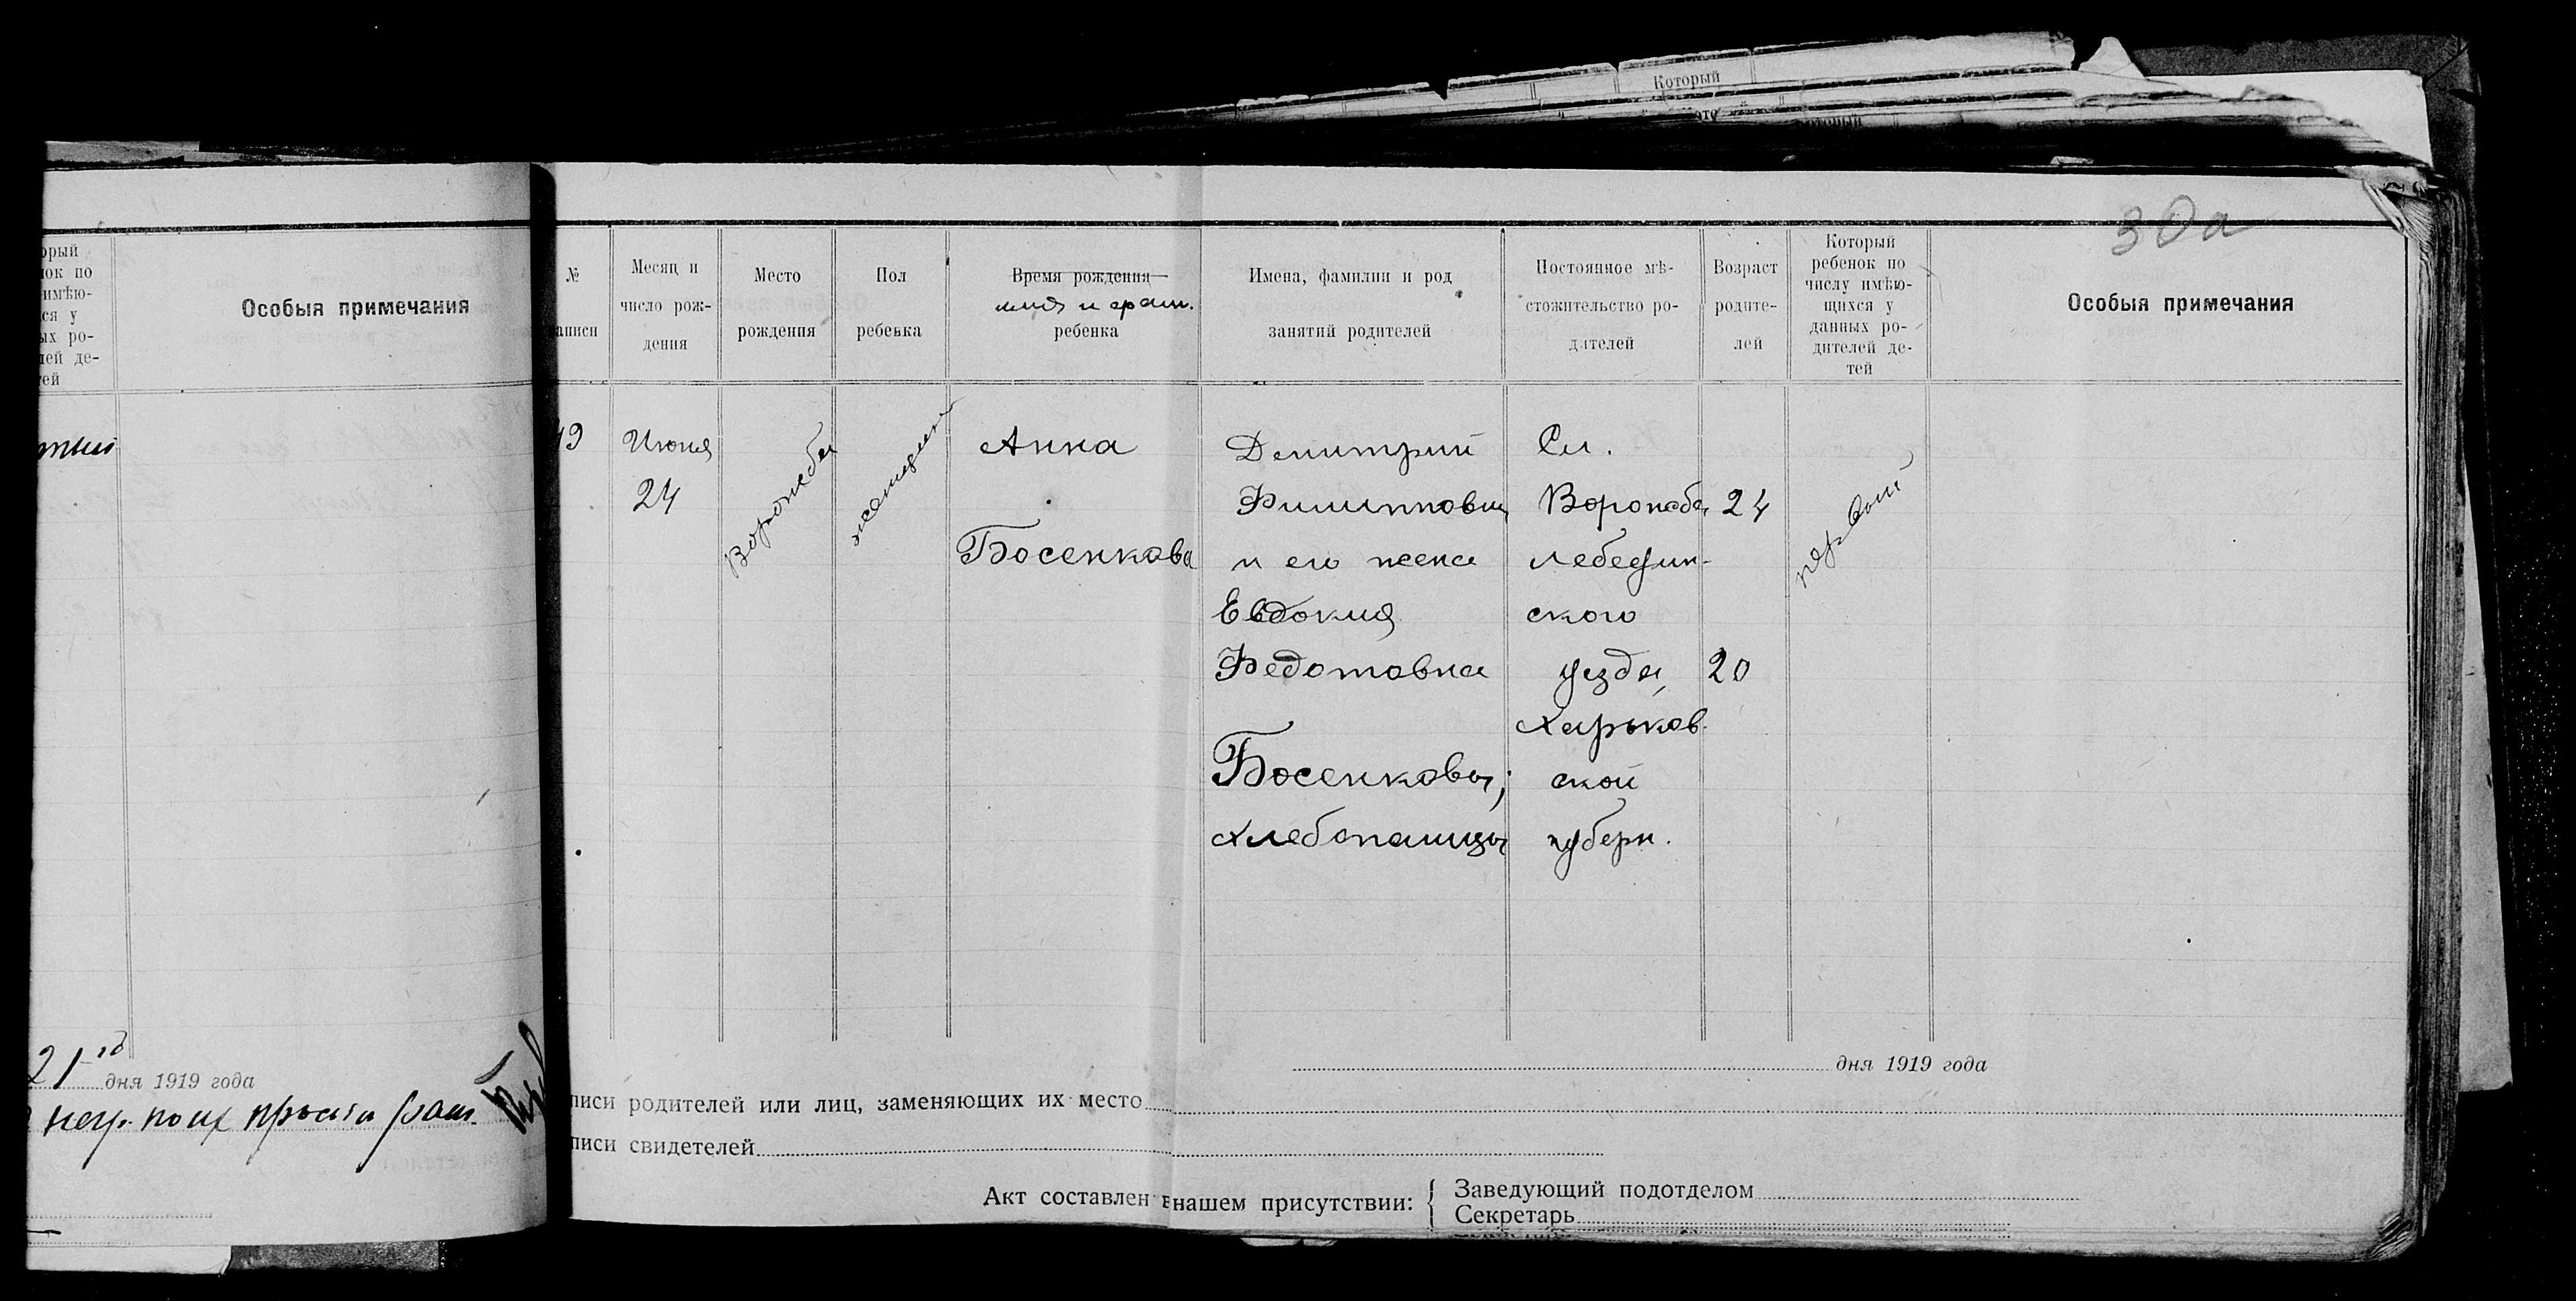 Который
30а
орый
ок по
имѣю-
ся у
ых ро-
лей де-
тей
Особыя примечания
тый
21 го
дня 1919 года
негр.
№
аписи
Месяц и
число рож-
дения
Место
рождения
Пол
ребенка
Время рождения
имя и фам.
ребенка
Имена, фамилии и род
занятий родителей
Постоянное мѣ-
стожительство ро-
дителей
Возраст
родите-
лей
Который
ребенок по
числу имѣю-
щихся у
данных ро-
дителей де-
тей
Особыя примечания
49
Июня
24
Ворожба
женщин
Анна
Босенкова
Димитрий
Филиппович
и его жена
Евдокия
Федотовна
Босенковы;
хлебопашцы
Сл.
Ворожба,
Лебедин-
ского
уезда,
Харьков-
ской
губерн.
24
20
первый
дня 1919 года
писи родителей или лиц, заменяющих их место
писи свидетелей
Акт составлен в нашем присутствии:
Заведующий подотделом
Секретарь